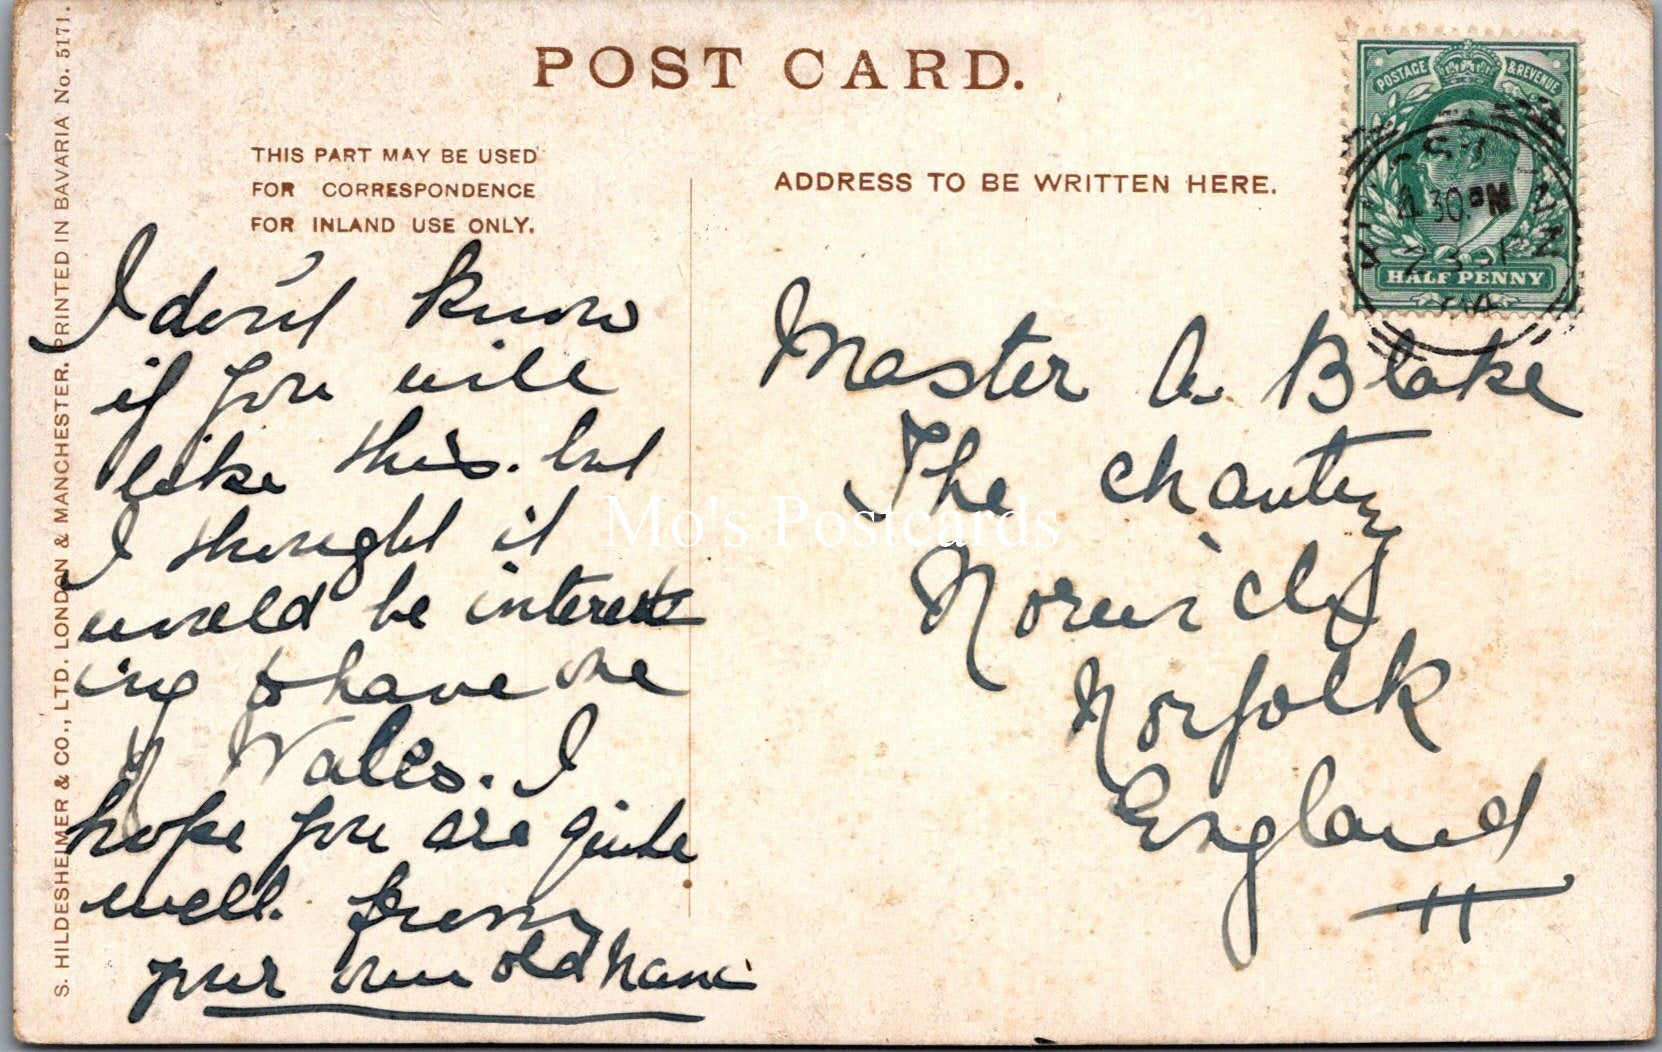 POST CARD.
THIS PART MAY BE USED
FOR CORRESPONDENCE
FOR INLAND USE ONLY.
ADDRESS TO BE WRITTEN HERE.
POSTAGE & REVENUE
HALF PENNY
4 30 PM
S. HILDESHEIMER & CO., LTD. LONDON & MANCHESTER. PRINTED IN BAVARIA No. 5171.
I don't know
if you will
like this. but
I thought it
would be interest
ing to have one
of Wales. I
hope you are quite
well. from
your own old Nana
Master A. Blake
The Chantry
Norwich
Norfolk
England
Mo's Postcards